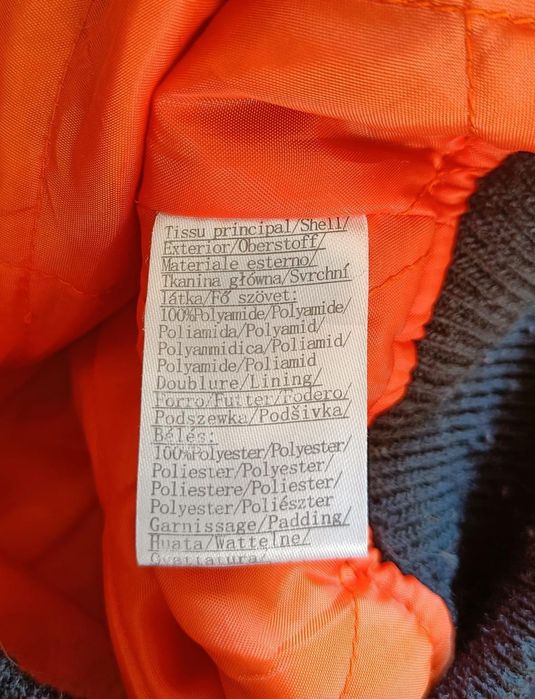 Tissu principal/Shell/
Exterior/Oberstoff/
Materiale esterno/
Tkanina główna/Svrchní
látka/Fő szövet:
100%Polyamide/Polyamide/
Poliamida/Polyamid/
Polyammidica/Poliamid/
Polyamide/Poliamid
Doublure/Lining/
Forro/Futter/Fodero/
Podszewka/Podšívka/
Bélés:
100%Polyester/Polyester/
Poliester/Polyester/
Poliestere/Poliester/
Polyester/Poliészter
Garnissage/Padding/
Huata/Wattelne/
Ovattatura/